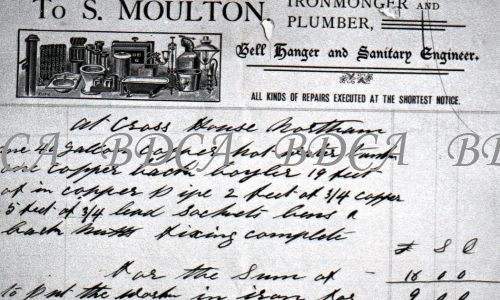 To S. MOULTON,
IRONMONGER AND
PLUMBER,
Bell Hanger and Sanitary Engineer.
ALL KINDS OF REPAIRS EXECUTED AT THE SHORTEST NOTICE.
At Cross House Northam
one 40 gallon copper hot water
one copper back boyler 19 feet
of in copper pipe 2 feet of 3/4 copper
5 feet of 3/4 lead Sockets bens &
back nutts Fixing complete
£ S D
For the Sum of - 18 0 0
to put the work in iron for 9 0 0
CA BDCA BDCA BD